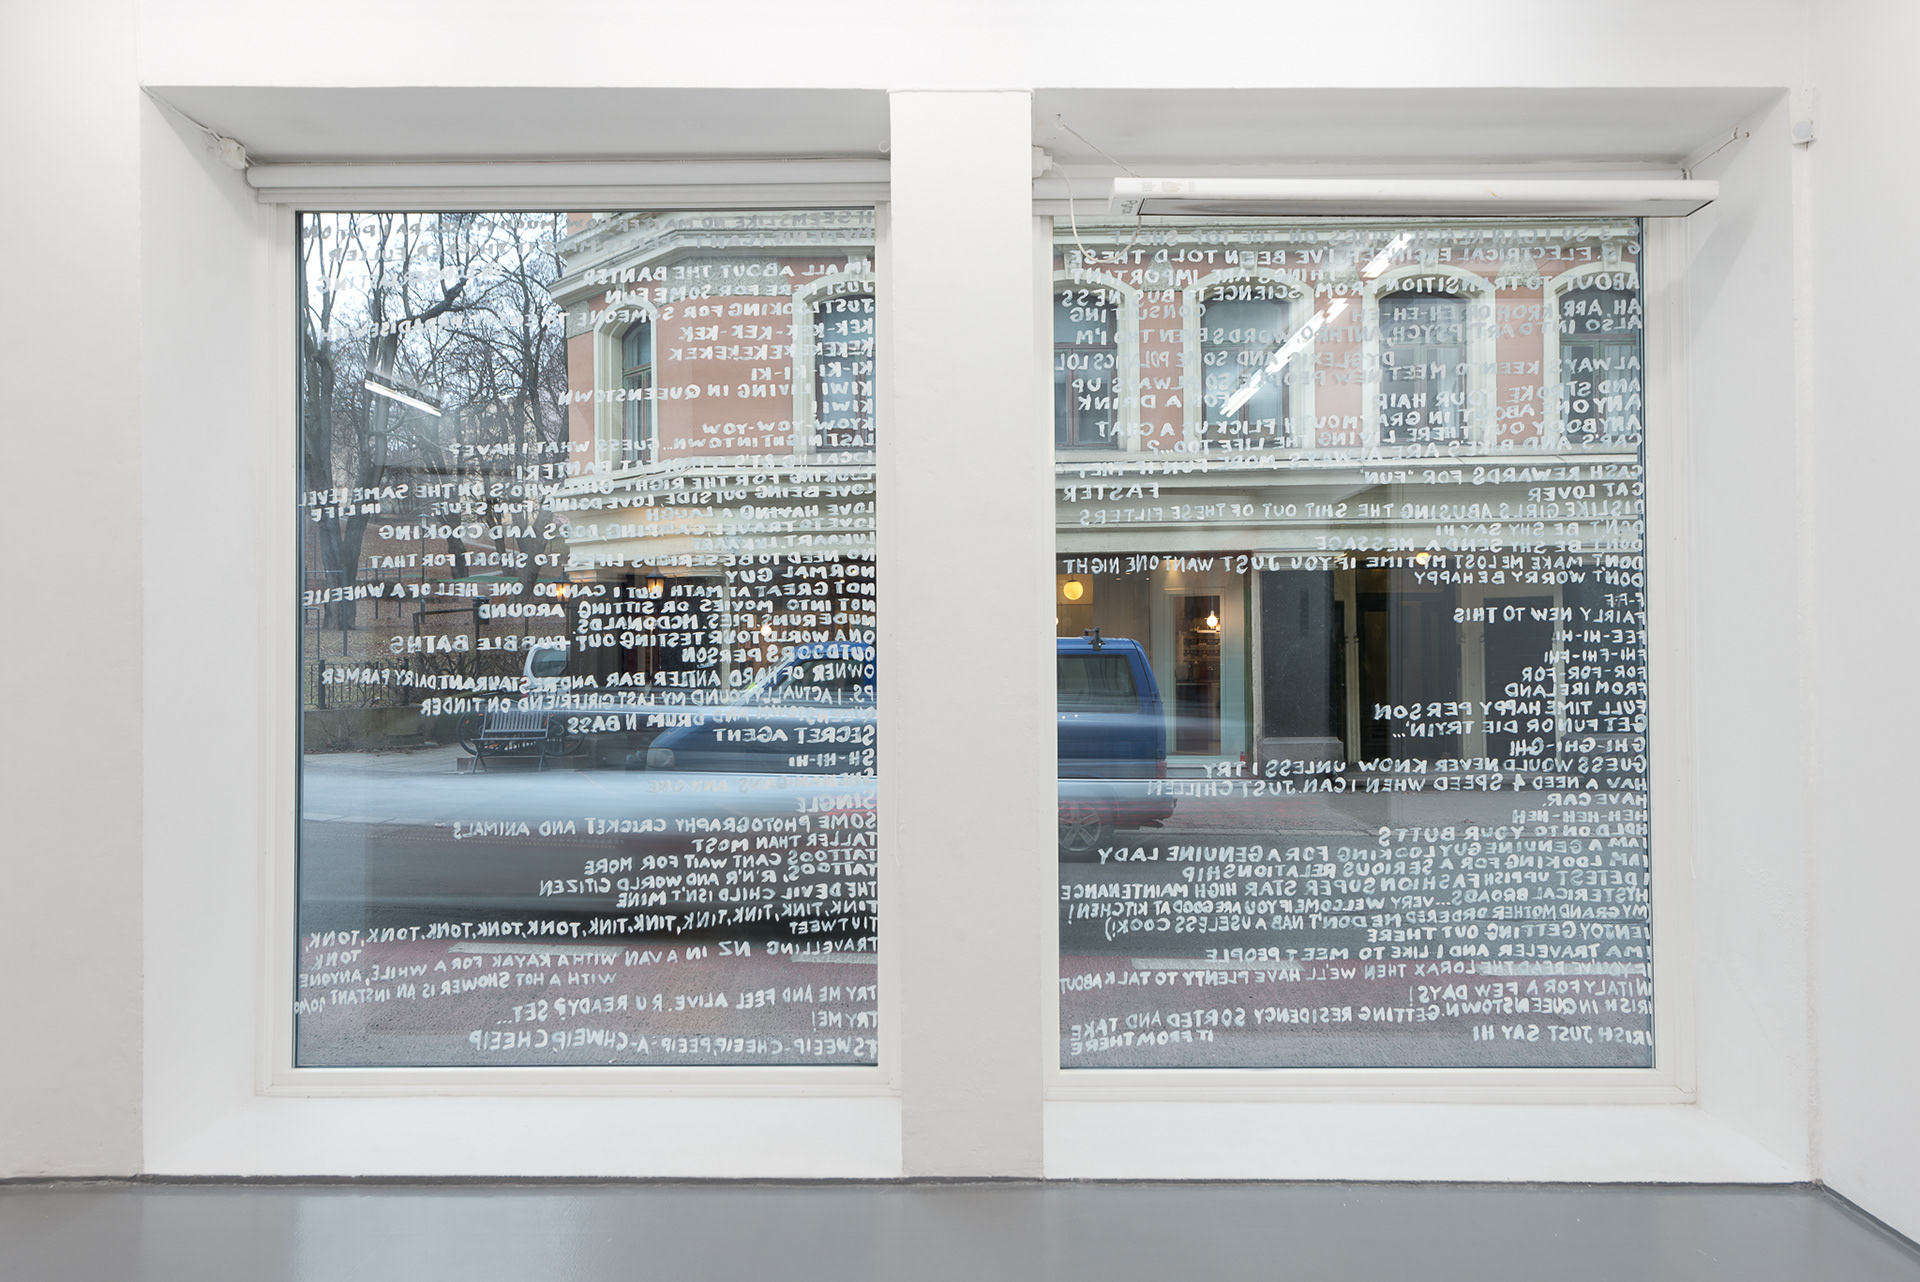 S.ELECTRICAL ENGINEER. I'VE BEEN TOLD THESE
THINGS ARE IMPORTANT
ABOUT TO TRANSITION FROM SCIENCE TO BUSINESS
CONSULTING
ALSO INTO ART, PSYCH, WITH WORDS
DYSLEXIC AND SOME POLITICS LOL
ALWAYS KEEN TO MEET NEW PEOPLE SO ALWAYS UP
FOR A DRINK
AND STROKE YOUR HAIR
ANYONE ABOUT IN GRAYMOUTH FLICK US A CHAT
ANYBODY OUT THERE LIVING THE LIFE TOO...?
CARS AND BIKES ARE ALWAYS MORE FUN
FASTER
CASH REWARDS FOR "FUN"
CAT LOVER
DISLIKE GIRLS ABUSING THE SHIT OUT OF THESE FILTERS
DON'T BE SHY SAY HI
DON'T BE SHY SEND A MESSAGE
DONT MAKE ME LOST MY TIME IF YOU JUST WANT ONE NIGHT
DONT WORRY BE HAPPY
F-F-F
FAIRLY NEW TO THIS
FEE-HI-HI
FHI-FHI-FHI
FOR-FOR-FOR
FROM IRELAND
FULL TIME HAPPY PERSON
GET FUN OR DIE TRYIN'...
GHI-GHI-GHI
GUESS WOULD NEVER KNOW UNLESS I TRY
HAV A NEED 4 SPEED WHEN I CAN. JUST CHILLEN
HAVE CAR.
HEH-HEH-HEH
HOLD ON TO YOUR BUTTS
I AM A GENUINE GUY LOOKING FOR A GENUINE LADY
I AM LOOKING FOR A SERIOUS RELATIONSHIP
I DETEST UPPISH FASHION SUPER STAR HIGH MAINTENANCE
HYSTERICAL BROADS... VERY WELCOME IF YOU ARE GOOD AT KITCHEN!
(MY GRAND MOTHER ORDERED ME DON'T NAB A USELESS COOK!)
I ENJOY GETTING OUT THERE
I'M A TRAVELER AND I LIKE TO MEET PEOPLE
IF YOU'VE READ THE LORAX THEN WE'LL HAVE PLENTY TO TALK ABOUT
IN ITALY FOR A FEW DAYS!
IRISH IN QUEENSTOWN. GETTING RESIDENCY SORTED AND TAKE
IT FROM THERE
IRISH JUST SAY HI
I'M ALL ABOUT THE BANTER
JUST HERE FOR SOME FUN
JUST LOOKING FOR SOMEONE TO
KEK-KEK-KEK-KEK
KEKEKEKEKEKEKEK
KI-KI-KI-KI
KIWI LIVING IN QUEENSTOWN
KIWI!
KYOW-YOW-YOW
LAST NIGHT IN TOWN... GUESS WHAT I HAVE!?
LOOKING FOR THE RIGHT GIRL WHO'S ON THE SAME LEVEL
IN LIFE
LOVE BEING OUTSIDE LOVE DOING FUN STUFF
LOVE HAVING A LAUGH
LOVE TO TRAVEL, CAMPING, DOGS AND COOKING
NO NEED TO BE SERIOUS LIFES TO SHORT FOR THAT
NORMAL GUY
NOT GREAT AT MATH BUT I CAN DO ONE HELL OF A WHEELIE
NOT INTO MOVIES OR SITTING AROUND
NUDE RUNS. PIES. MCDONALDS
ON A WORLD TOUR TESTING OUT BUBBLE BATHS
OUTDOORS PERSON
OWNER OF HARD ANTLER BAR AND RESTAURANT. DAIRY FARMER
PS. I ACTUALLY FOUND MY LAST GIRLFRIEND ON TINDER
QUEENSTOWN AND DRUM N BASS
SECRET AGENT
SH-HI-HI
SINGLE
SOME PHOTOGRAPHY CRICKET AND ANIMALS
TALLER THAN MOST
TATTOOS CANT WAIT FOR MORE
TATTOOS, R'N'R AND WORLD CITIZEN
THE DEVIL CHILD ISN'T MINE
TINK, TINK, TINK, TINK, TINK, TINK, TONK, TONK, TONK, TONK, TONK,
TONK
TIUTIUTWEET
TRAVELLING NZ IN A VAN WITH A KAYAK FOR A WHILE, ANYONE
WITH A HOT SHOWER IS AN INSTANT
TRY ME AND FEEL ALIVE. R U READY? SET...
TRY ME!
TSWEEIP-CHEEIP, PEEIP-A-CHWEEIP CHEEIP